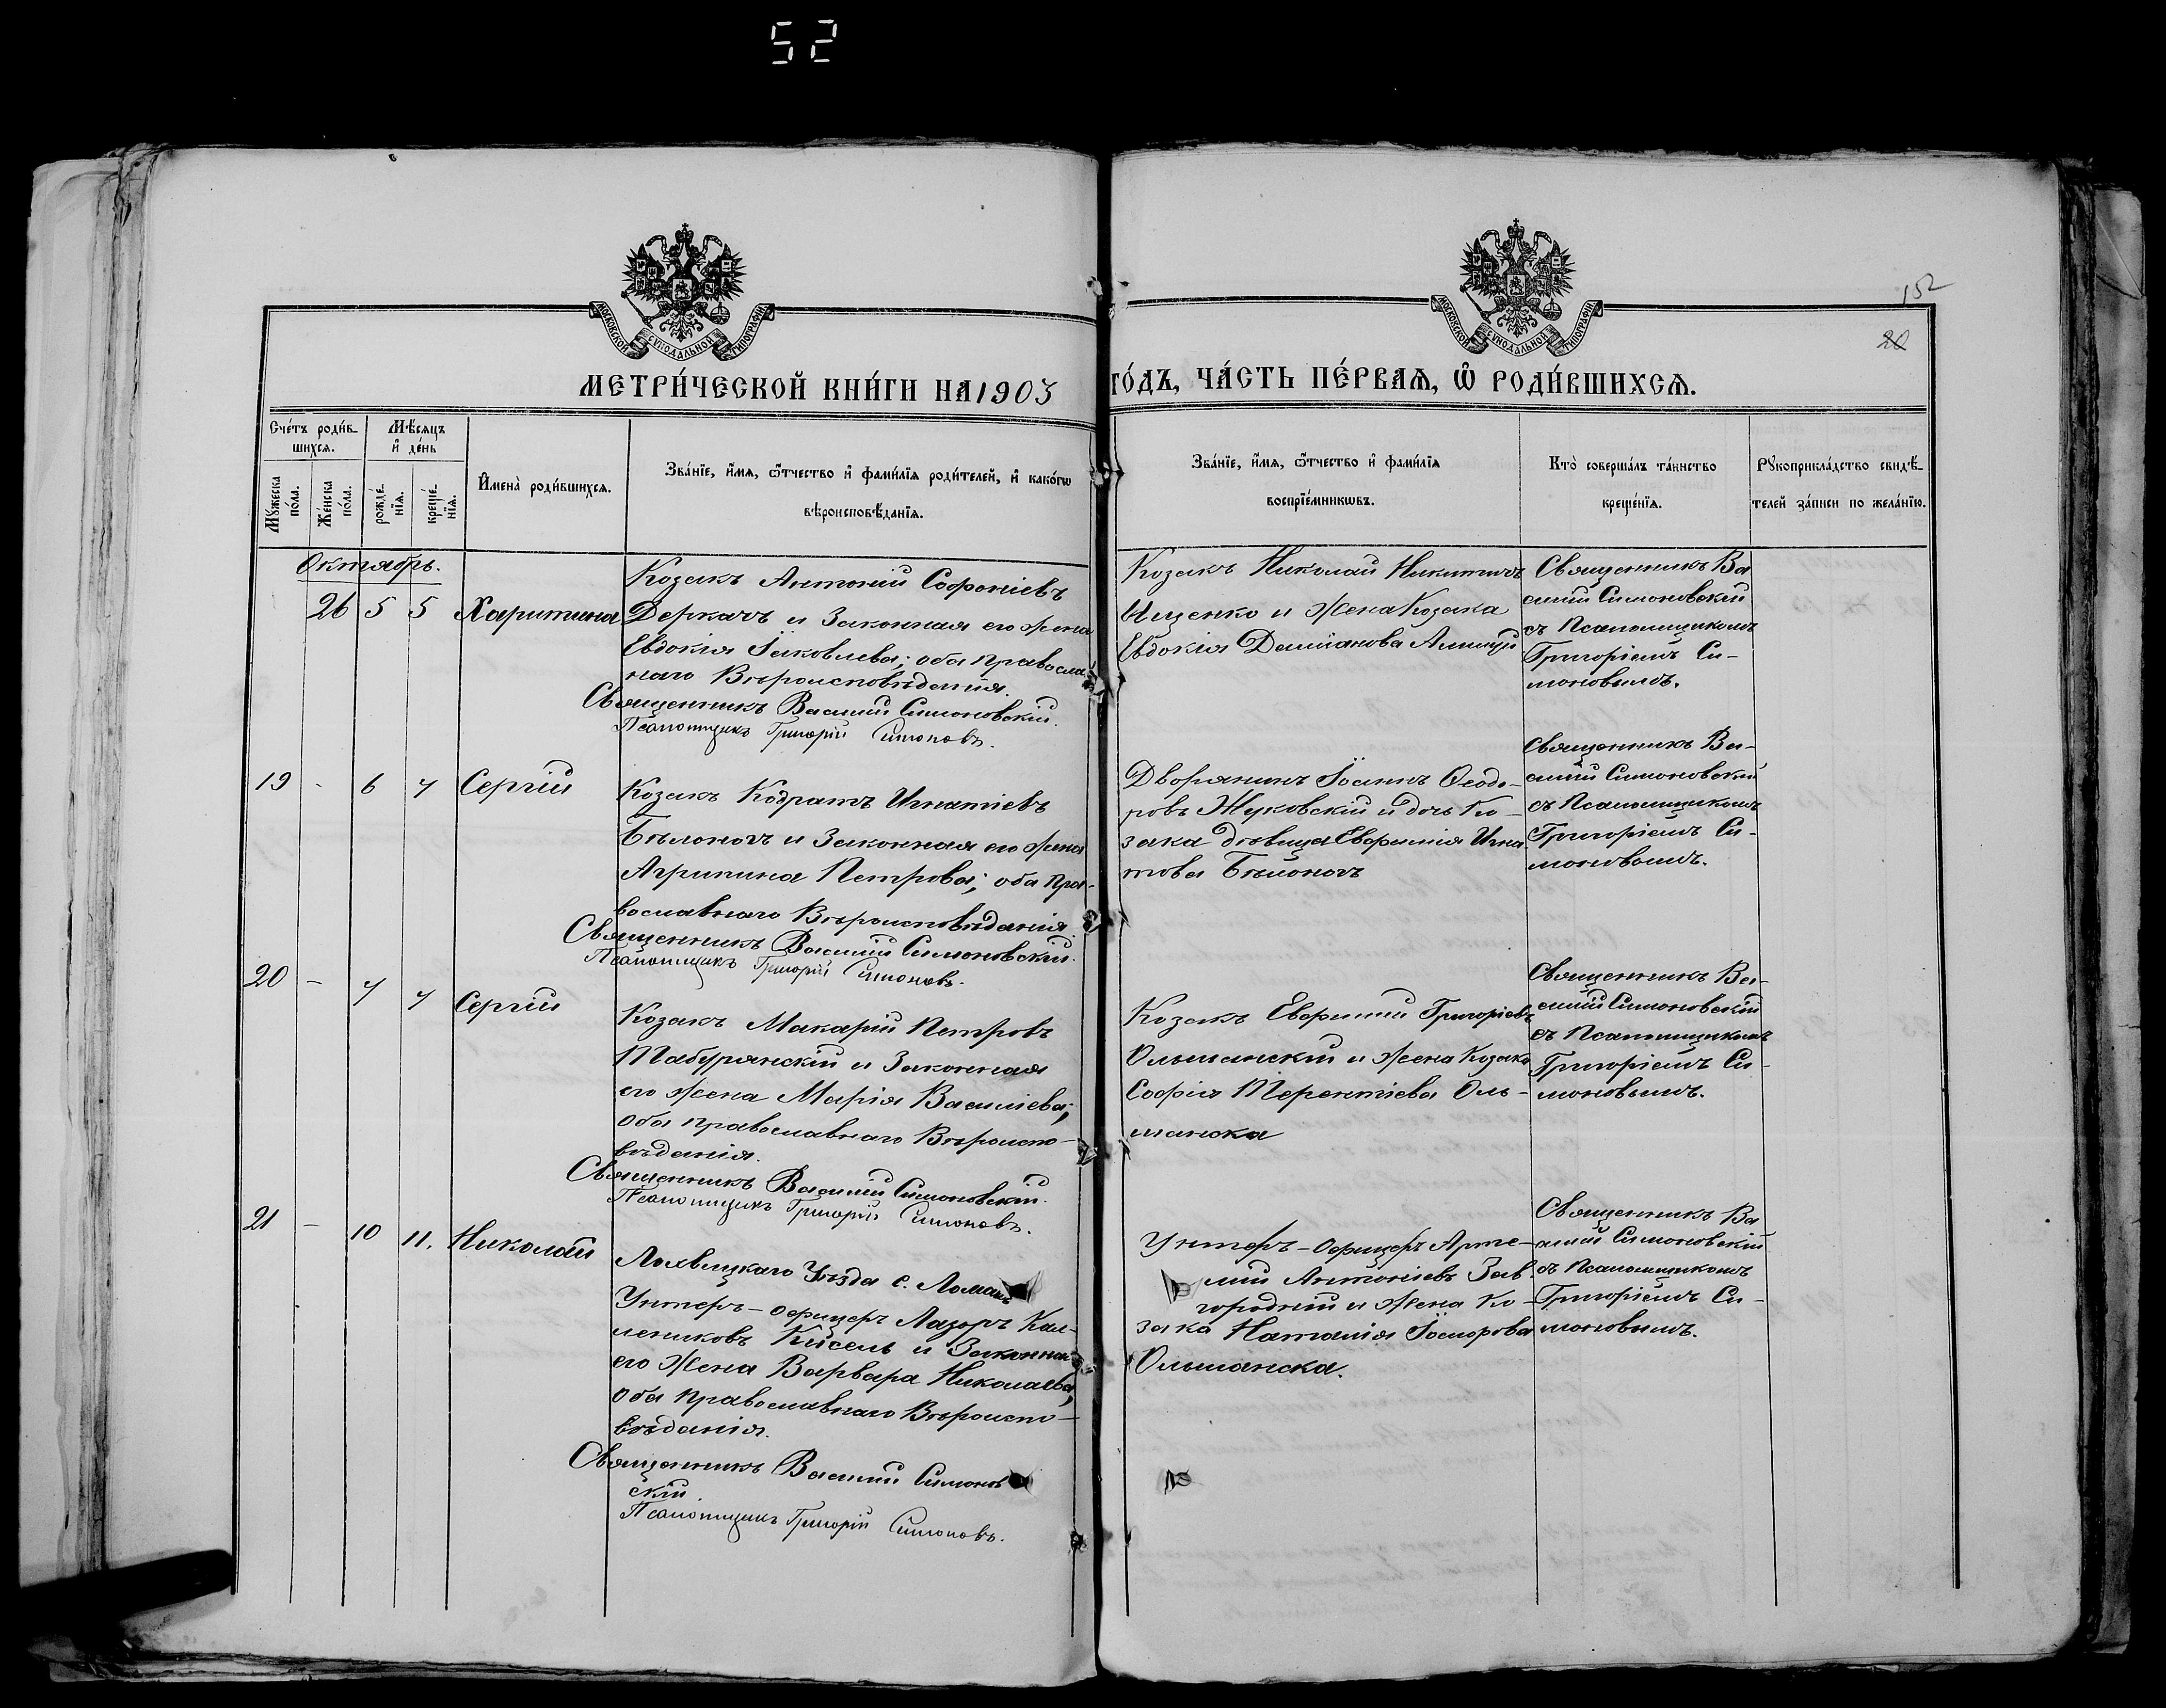 52
152
20
МОСКОВСКОЙ СѴНОДАЛЬНОЙ ТИПОГРАФІИ
МОСКОВСКОЙ СѴНОДАЛЬНОЙ ТИПОГРАФІИ
МЕТРИ́ЧЕСКОЙ КНИ́ГИ НА 1903 ГО́ДЪ, ЧА́СТЬ ПЕ́РВАЯ, Ѡ҆ РОДИ́ВШИХСѦ.
Счє́тъ роди́в-
шихсѧ.
Мꙋ́жеска по́ла.
Же́нска по́ла.
Мѣ́сѧцъ
и҆ де́нь
рожде́-
нїѧ.
креще́-
нїѧ.
И҆мена̀ роди́вшихсѧ.
Зва́нїе, и҆́мѧ, ѻ҆́тчество и҆ фами́лїѧ роди́телей, и҆ како́гѡ
вѣроисповѣ́данїѧ.
Зва́нїе, и҆́мѧ, ѻ҆́тчество и҆ фами́лїѧ
воспрїе́мникѡвъ.
Кто̀ соверша́лъ та́инство
креще́нїѧ.
Рꙋкоприкла́дство свидѣ́-
телей за́писи по жела́нїю.
Октябрь.
26 5 5 Харитина
Козакъ Антоній Софоніевъ
Деркачъ и Законная его жена
Евдокія Іаковлева; оба Правосла
наго Вѣроисповѣданія.
Священникъ Василій Симоновскій.
Псаломщикъ Григорій Симоновъ.
Козакъ Николай Никитинъ
Ищенко и жена Козака
Евдокія Даміанова
Священникъ Ва
силій Симоновскій
съ Псаломщикомъ
Григоріемъ Си-
моновымъ.
19 - 6 7 Сергій
Козакъ Кодратъ Игнатіевъ
Бѣлоногъ и Законная его жена
Агрипина Петрова; оба Пра-
вославнаго Вѣроисповѣданія.
Священникъ Василій Симоновскій.
Псаломщикъ Григорій Симоновъ.
Дворянинъ Іоаннъ Ѳеодо-
ровъ Жуковскій и дочь Ко-
зака дѣвица Евфимія Игна-
това Бѣлоногъ
Священникъ Ва-
силій Симоновскій
съ Псаломщикомъ
Григоріемъ Си-
моновымъ.
20 - 7 7 Сергій
Козакъ Макарій Петровъ
Табурянскій и Законная
его жена Марія Василіева;
оба православнаго Вѣроиспо-
вѣданія.
Священникъ Василій Симоновскій.
Псаломщикъ Григорій Симоновъ.
Козакъ Евфимій Григоріевъ
Ольшанскій и жена Козака
Софія Терентіева Оль-
шанска
Священникъ Ва-
силій Симоновскій
съ Псаломщикомъ
Григоріемъ Си-
моновымъ.
21 - 10 11. Николай
Лохвицкаго Уѣзда с. Лома
Унтеръ-офицеръ Лазоръ Кал-
лениковъ Кисель и Законная
его жена Варвара Николаева;
оба православнаго Вѣроиспо-
вѣданія.
Священникъ Василій Симонов
скій
Псаломщикъ Григорій Симоновъ.
Унтеръ-офицеръ Арте-
мій Антоніевъ Зав
городній и жена Ко-
зака Наталія
Ольшанска.
Священникъ Ва
силій Симоновскій
съ Псаломщикомъ
Григоріемъ Си-
моновымъ.